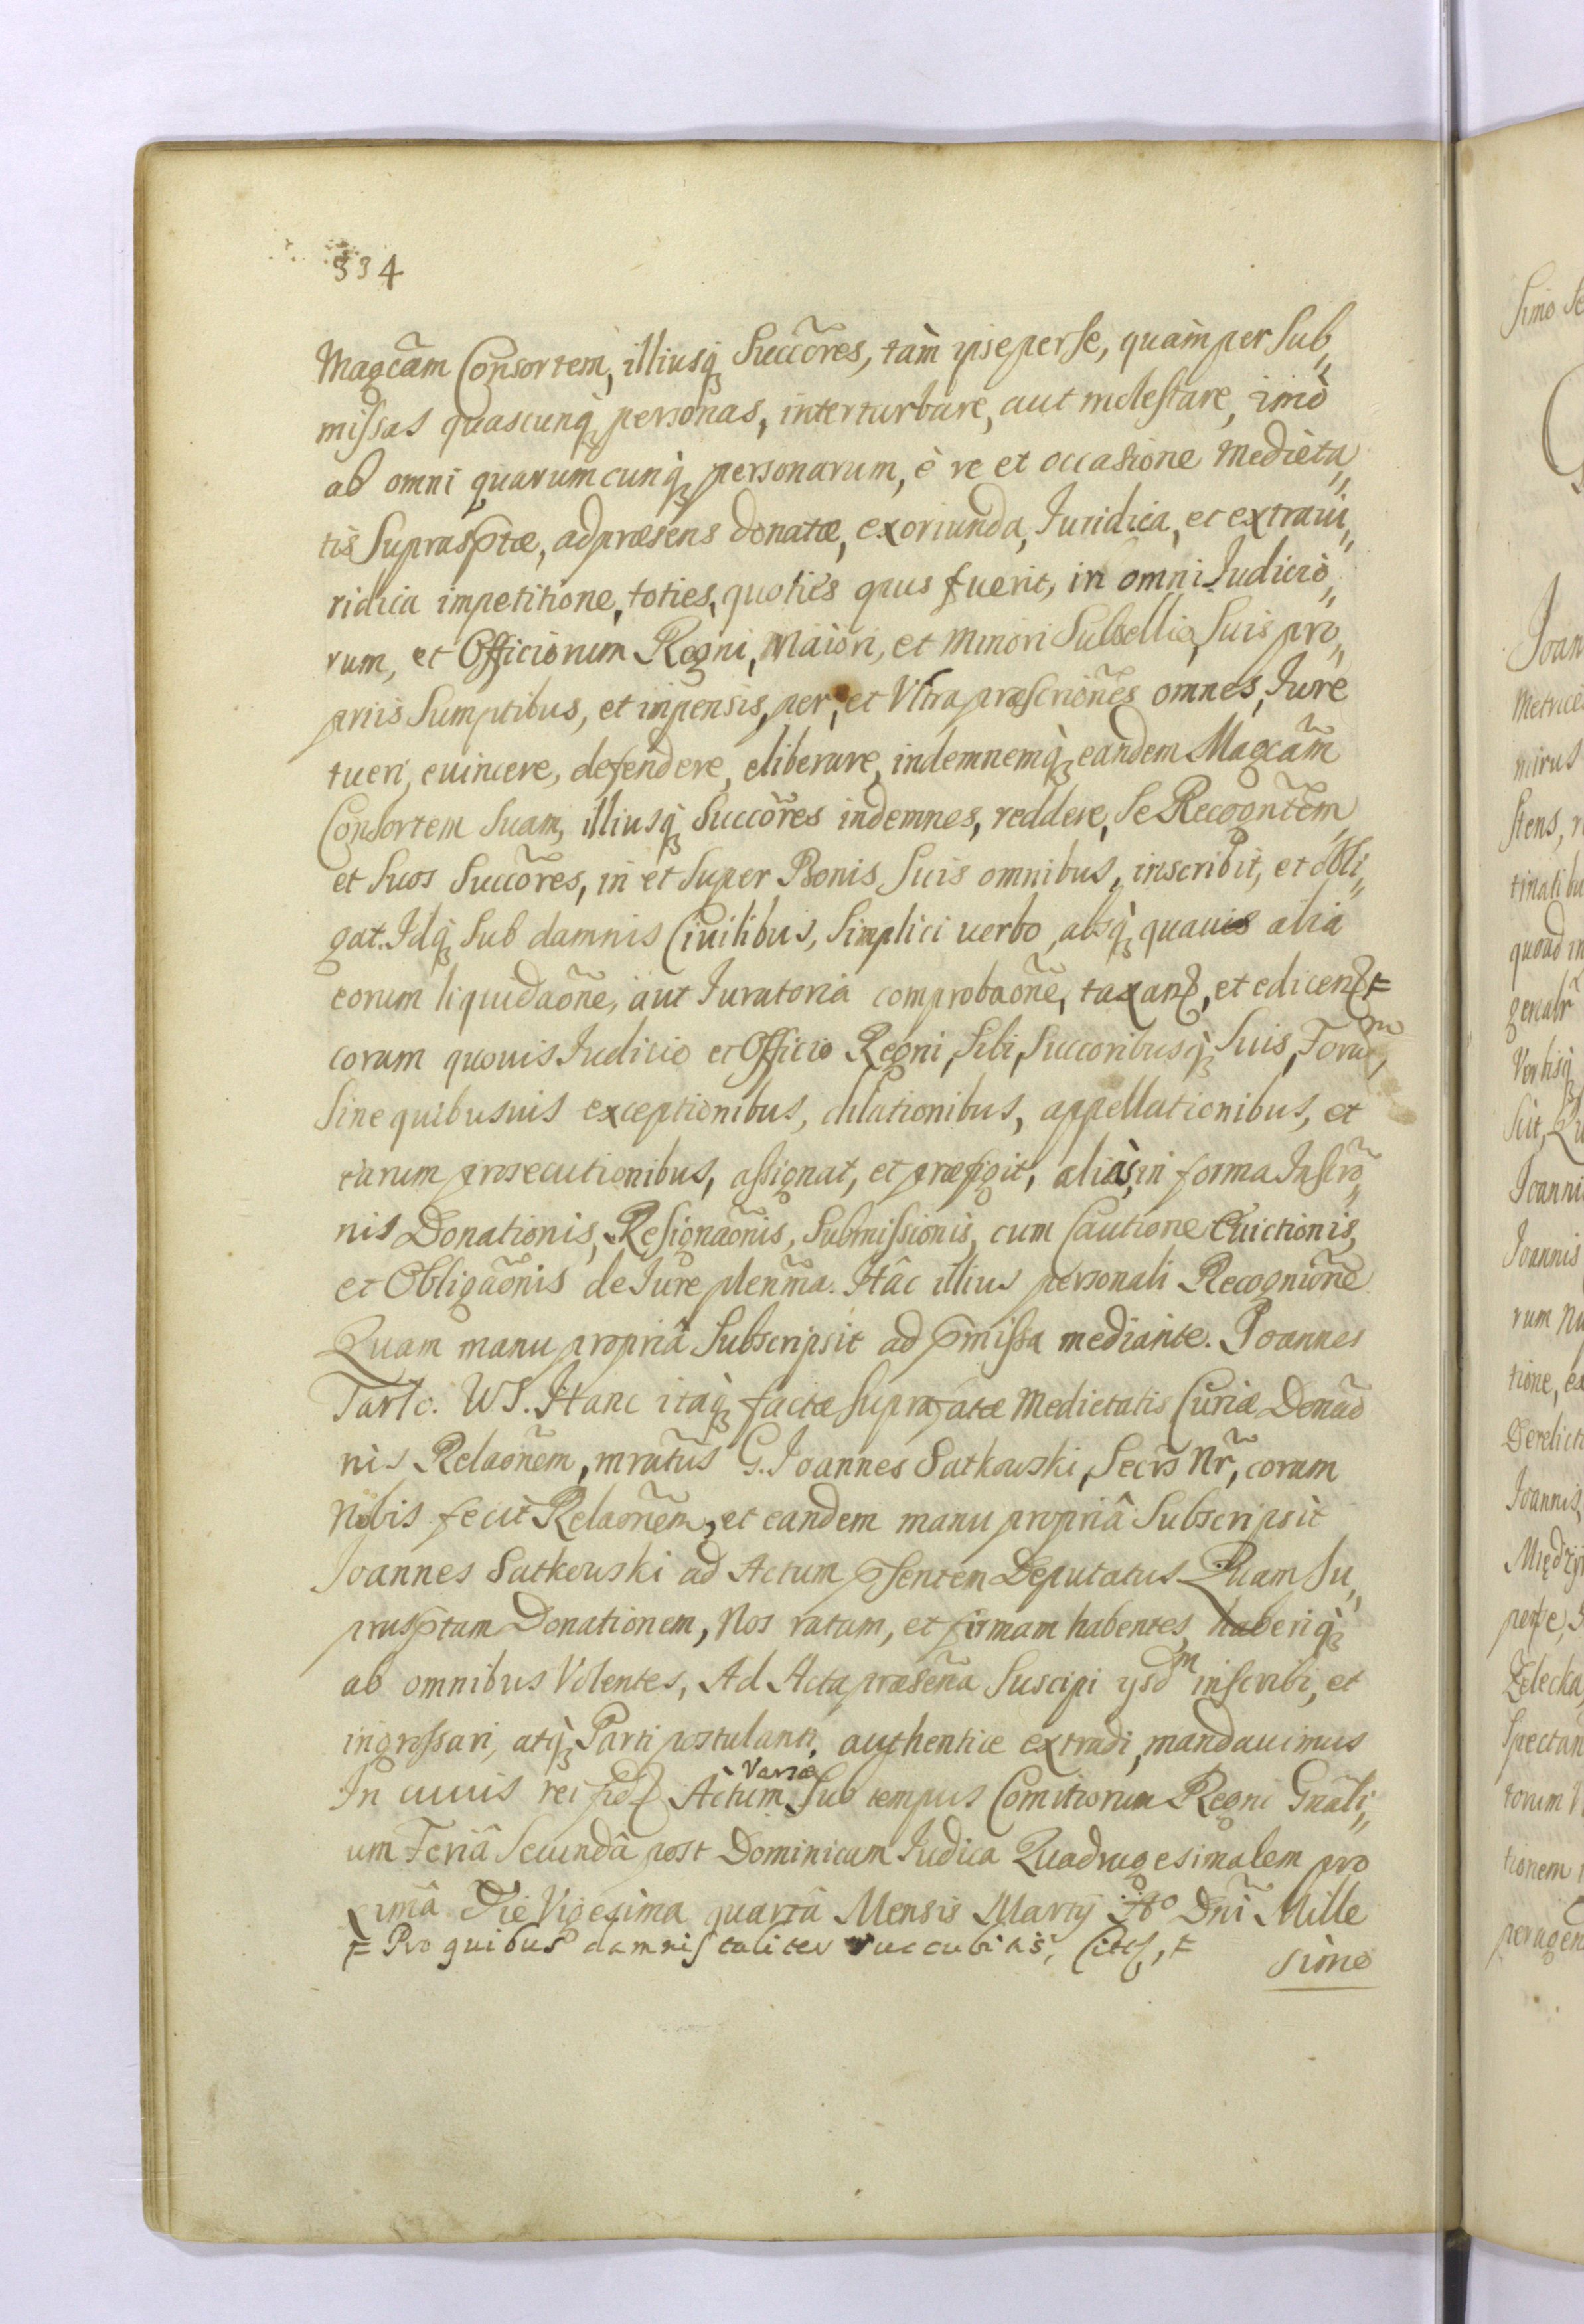 334
Magcãm Consortem, illiusq́ꝫ Succõres, tàm ipse per se, quàm per Sub„
missas quascunq́ꝫ personas, interturbare, aut molestare, imò
ab omni quarumcunq́ꝫ personarum, è re et occasione medieta„
tis Suprasptæ, ad præsens donatæ, exoriunda, Iuridica, et extraiu„
ridica impetitione, toties, quoties opus fuerit, in omni Iudicio„
rum, et Officiorum Regni, Maiori, et Minori Subsellio, Suis pro„
priis Sumptibus, et impensis, per, et Vltra præscriõnes omnes, Iure
tueri, euincere, defendere, eliberare, indemnemq́ꝫ eandem Magcãm
Consortem Suam, illiusq́ꝫ Succõres indemnes, reddere, Se Recogntẽm,
et Suos Succõres, in et Super Bonis Suis omnibus, inscribit, et obli„
gat. Idq́ꝫ Sub damnis Ciuilibus, Simplici uerbo, absq́ꝫ quauis alia
eorum liquidaõne, aut Iuratoria comprobaõne, taxanꝭ, et edicenꝭ ⹀
coram quouis Iudicio et Officio Regni, Sibi, Succoribusq́ꝫ Suis, Forum,
Sine quibusuis exceptionibus, dilationibus, appellationibus, et
earum prosecutionibus, assignat, et præfigit, aliàs, in forma Inscrõ„
nis Donationis, Resignaõnis, Submissionis, cum Cautione Euictionis,
et Obligaõnis de Iure plenm̃a. Hâc illius personali Recogniõne
Quam manu propriâ Subscripsit ad p̃missa mediante. Joannes
Tarlo. WS. Hanc itaq́ꝫ factæ Suprafatæ Medietatis Curiæ Donaõ
nis Relaõnem, mratũs G. Joannes Satkowski, Secrs̃ Nr̃, coram
Nobis fecit Relaõnem, et eandem manu propriâ Subscripsit
Joannes Satkowski ad Actum p̃sentem Deputatus. Quam Su„
prasptam Donationem, Nos ratam, et firmam habentes, haberiq́ꝫ
ab omnibus Volentes, Ad Acta præsẽna Suscipi ysdm inscribi, et
ingrossari, atq́ꝫ Parti postulanti, authentice extradi, mandauimus
In cuius rei fidꝭ Actum Varsæ Sub tempus Comitiorum Regni Gnãli„
um Feriâ Secundâ post Dominicam Iudica Quadragesimalem pro
ximâ Die Vigesima quartâ Mensis Martij Ao Dnĩ Mille
⹀ Pro quibus damnis taliter succubitis, Citꝭ, ⹀
simo